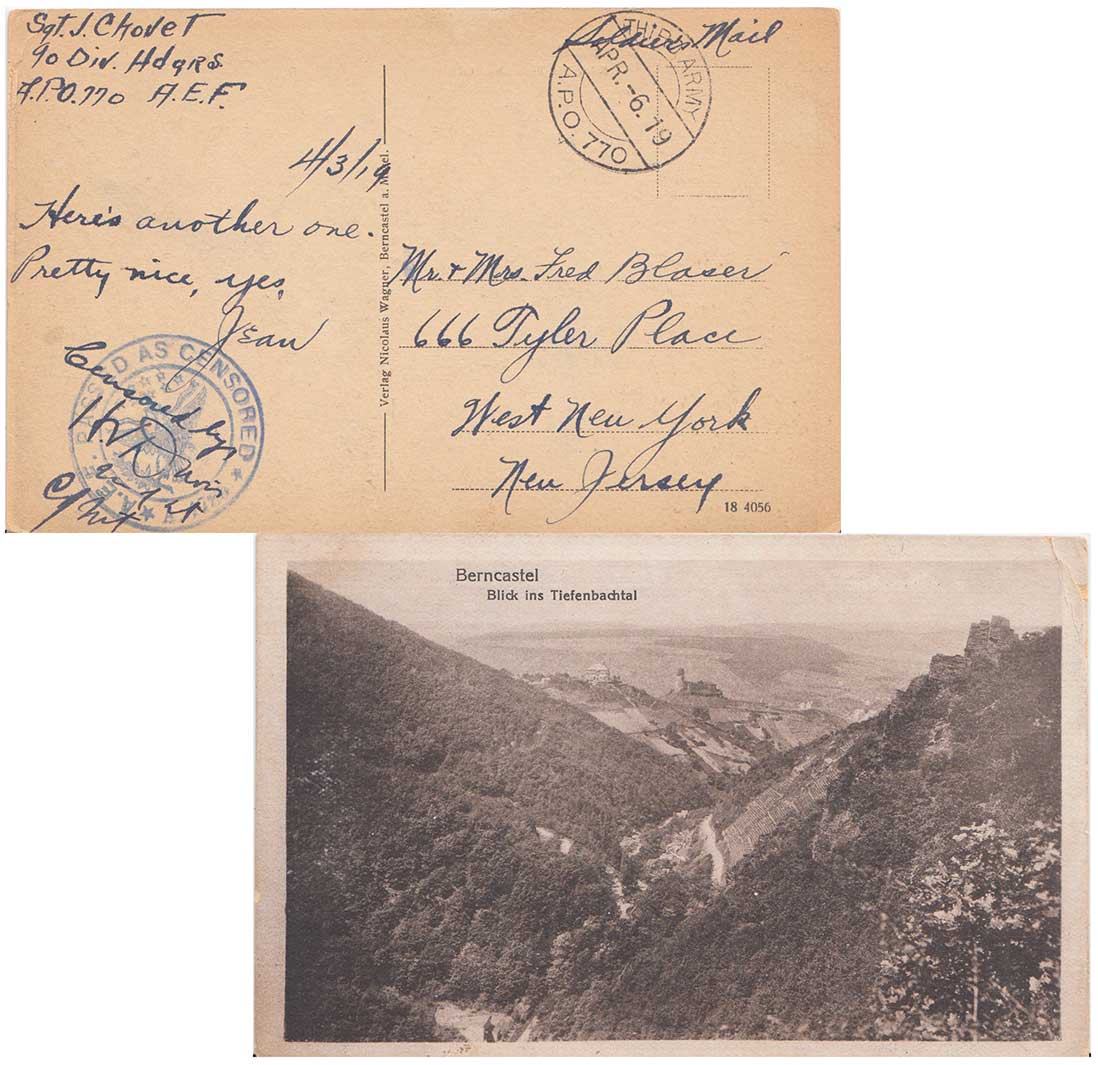 Sgt. J. Chovet
90 Div. Hdqrs.
A.P.O. 770 A.E.F.
Soldiers Mail
THIRD ARMY
APR.-6.19
A.P.O. 770
4/3/19
Here's another one.
Pretty nice, yes,
Jean
Verlag Nicolaus Wagner, Berncastel a. Mosel.
Mr. + Mrs. Fred Blaser
666 Tyler Place
West New York
New Jersey
A.E.F. PASSED AS CENSORED
Censored by
18 4056
Berncastel
Blick ins Tiefenbachtal